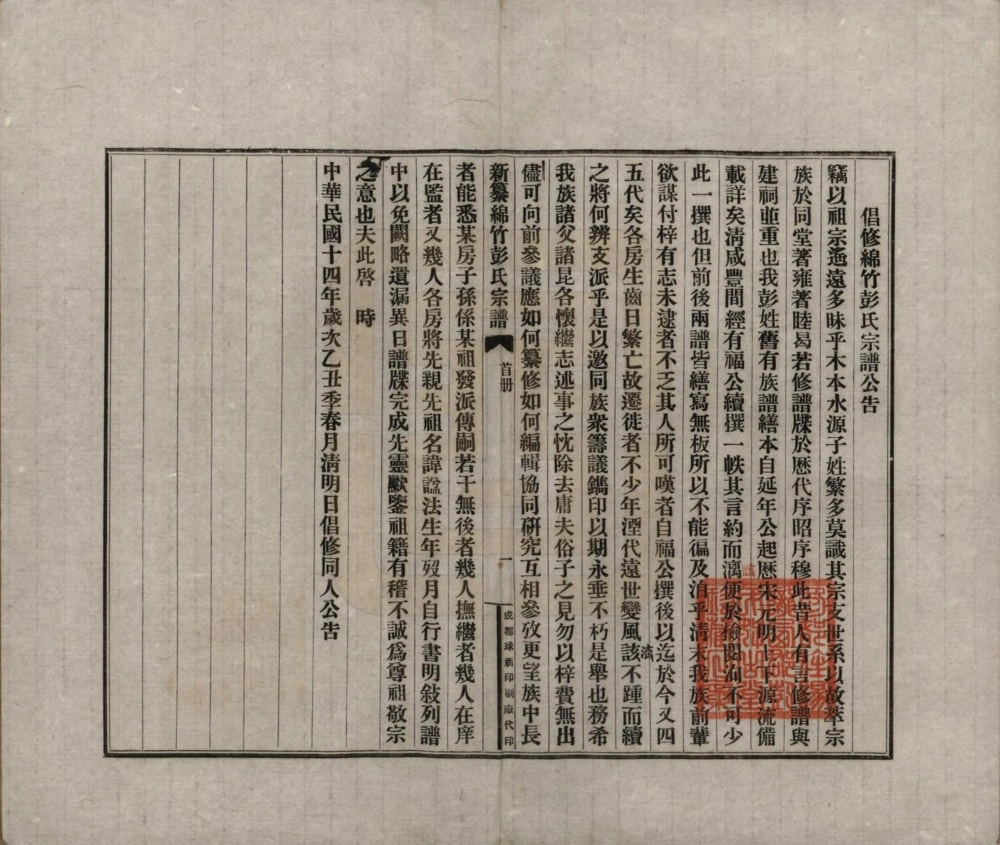 倡修綿竹彭氏宗譜公告
竊以祖宗迤遠多昧乎木本水源子姓繁多莫識其宗支世系以故萃宗
族於同堂著雍著睦曷若修譜牒於歷代序昭序穆此昔人有言修譜與
建祠並重也我彭姓舊有族譜繕本自延年公起歷宋元明上下源流備
載詳矣清咸豐間經有福公續撰一帙其言約而漓便於檢閱洵不可少
此一撰也但前後兩譜皆繕寫無板所以不能徧及洎乎清末我族前輩
欲謀付梓有志未逮者不乏其人所可嘆者自福公撰後以迄於今又四
五代矣各房生齒日繁亡故遷徙者不少年湮代遠世變風該不踵而續
之將何辨支派乎是以邀同族衆籌議鐫印以期永垂不朽是舉也務希
我族諸父諸昆各懷繼志述事之忱除去庸夫俗子之見勿以梓費無出
儘可向前參議應如何纂修如何編輯協同研究互相參攷更望族中長
新纂綿竹彭氏宗譜 首册 一 成都球新印刷廠代印
者能悉某房子孫係某祖發派傳嗣若干無後者幾人撫繼者幾人在庠
在監者又幾人各房將先親先祖名諱諡法生年歿月自行書明敍列譜
中以免闕略遺漏異日譜牒完成先靈默鑒祖籍有稽不誠爲尊祖敬宗
之意也夫此啓 時
中華民國十四年歲次乙丑季春月清明日倡修同人公告